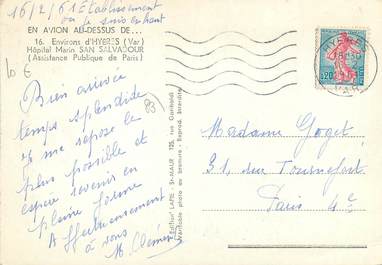 16/2/61 Etablissement
où je suis
EN AVION AU-DESSUS DE...
16. Environs d'HYERES (Var)
Hôpital Marin SAN SALVADOUR
(Assistance Publique de Paris)
6 €
(83)
Bien arrivée
temps splendide
je me repose le
plus possible et
espère revenir en
pleine forme
Affectueusement
à vous
M. Clément
Edition LAPIE - St-MAUR
Véritable photo au bromure - Reprod. Interdite
HYERES
VAR
0,20
Madame Goget
31, rue Tournefort
Paris